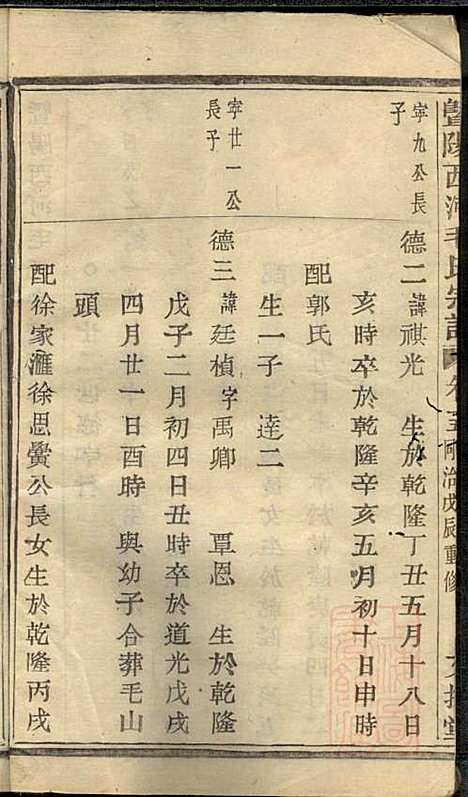 暨陽西河毛氏宗譜 卷五 同治戊辰重修
寧九公長
子
德二 諱祺光 生於乾隆丁丑五月十八日
亥時卒於乾隆辛亥五月初十日申時
配郭氏
生一子 達二
寧廿一公
長子
德三 諱廷楨 字禹卿 覃恩 生於乾隆
戊子二月初四日丑時卒於道光戊戌
四月廿一日酉時 與幼子合葬毛山
頭
配徐家滙徐思黌公長女生於乾隆丙戌